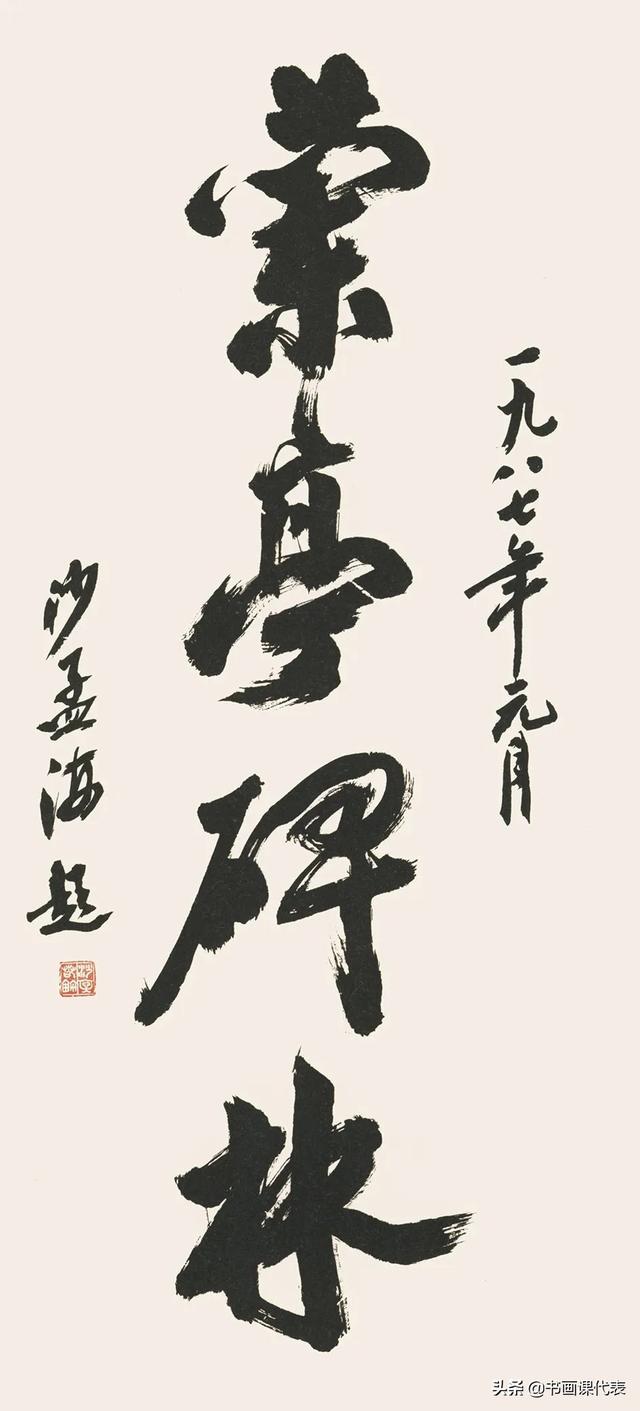 亭碑林
一九八七年元月
沙孟海题
头条 @书画课代表